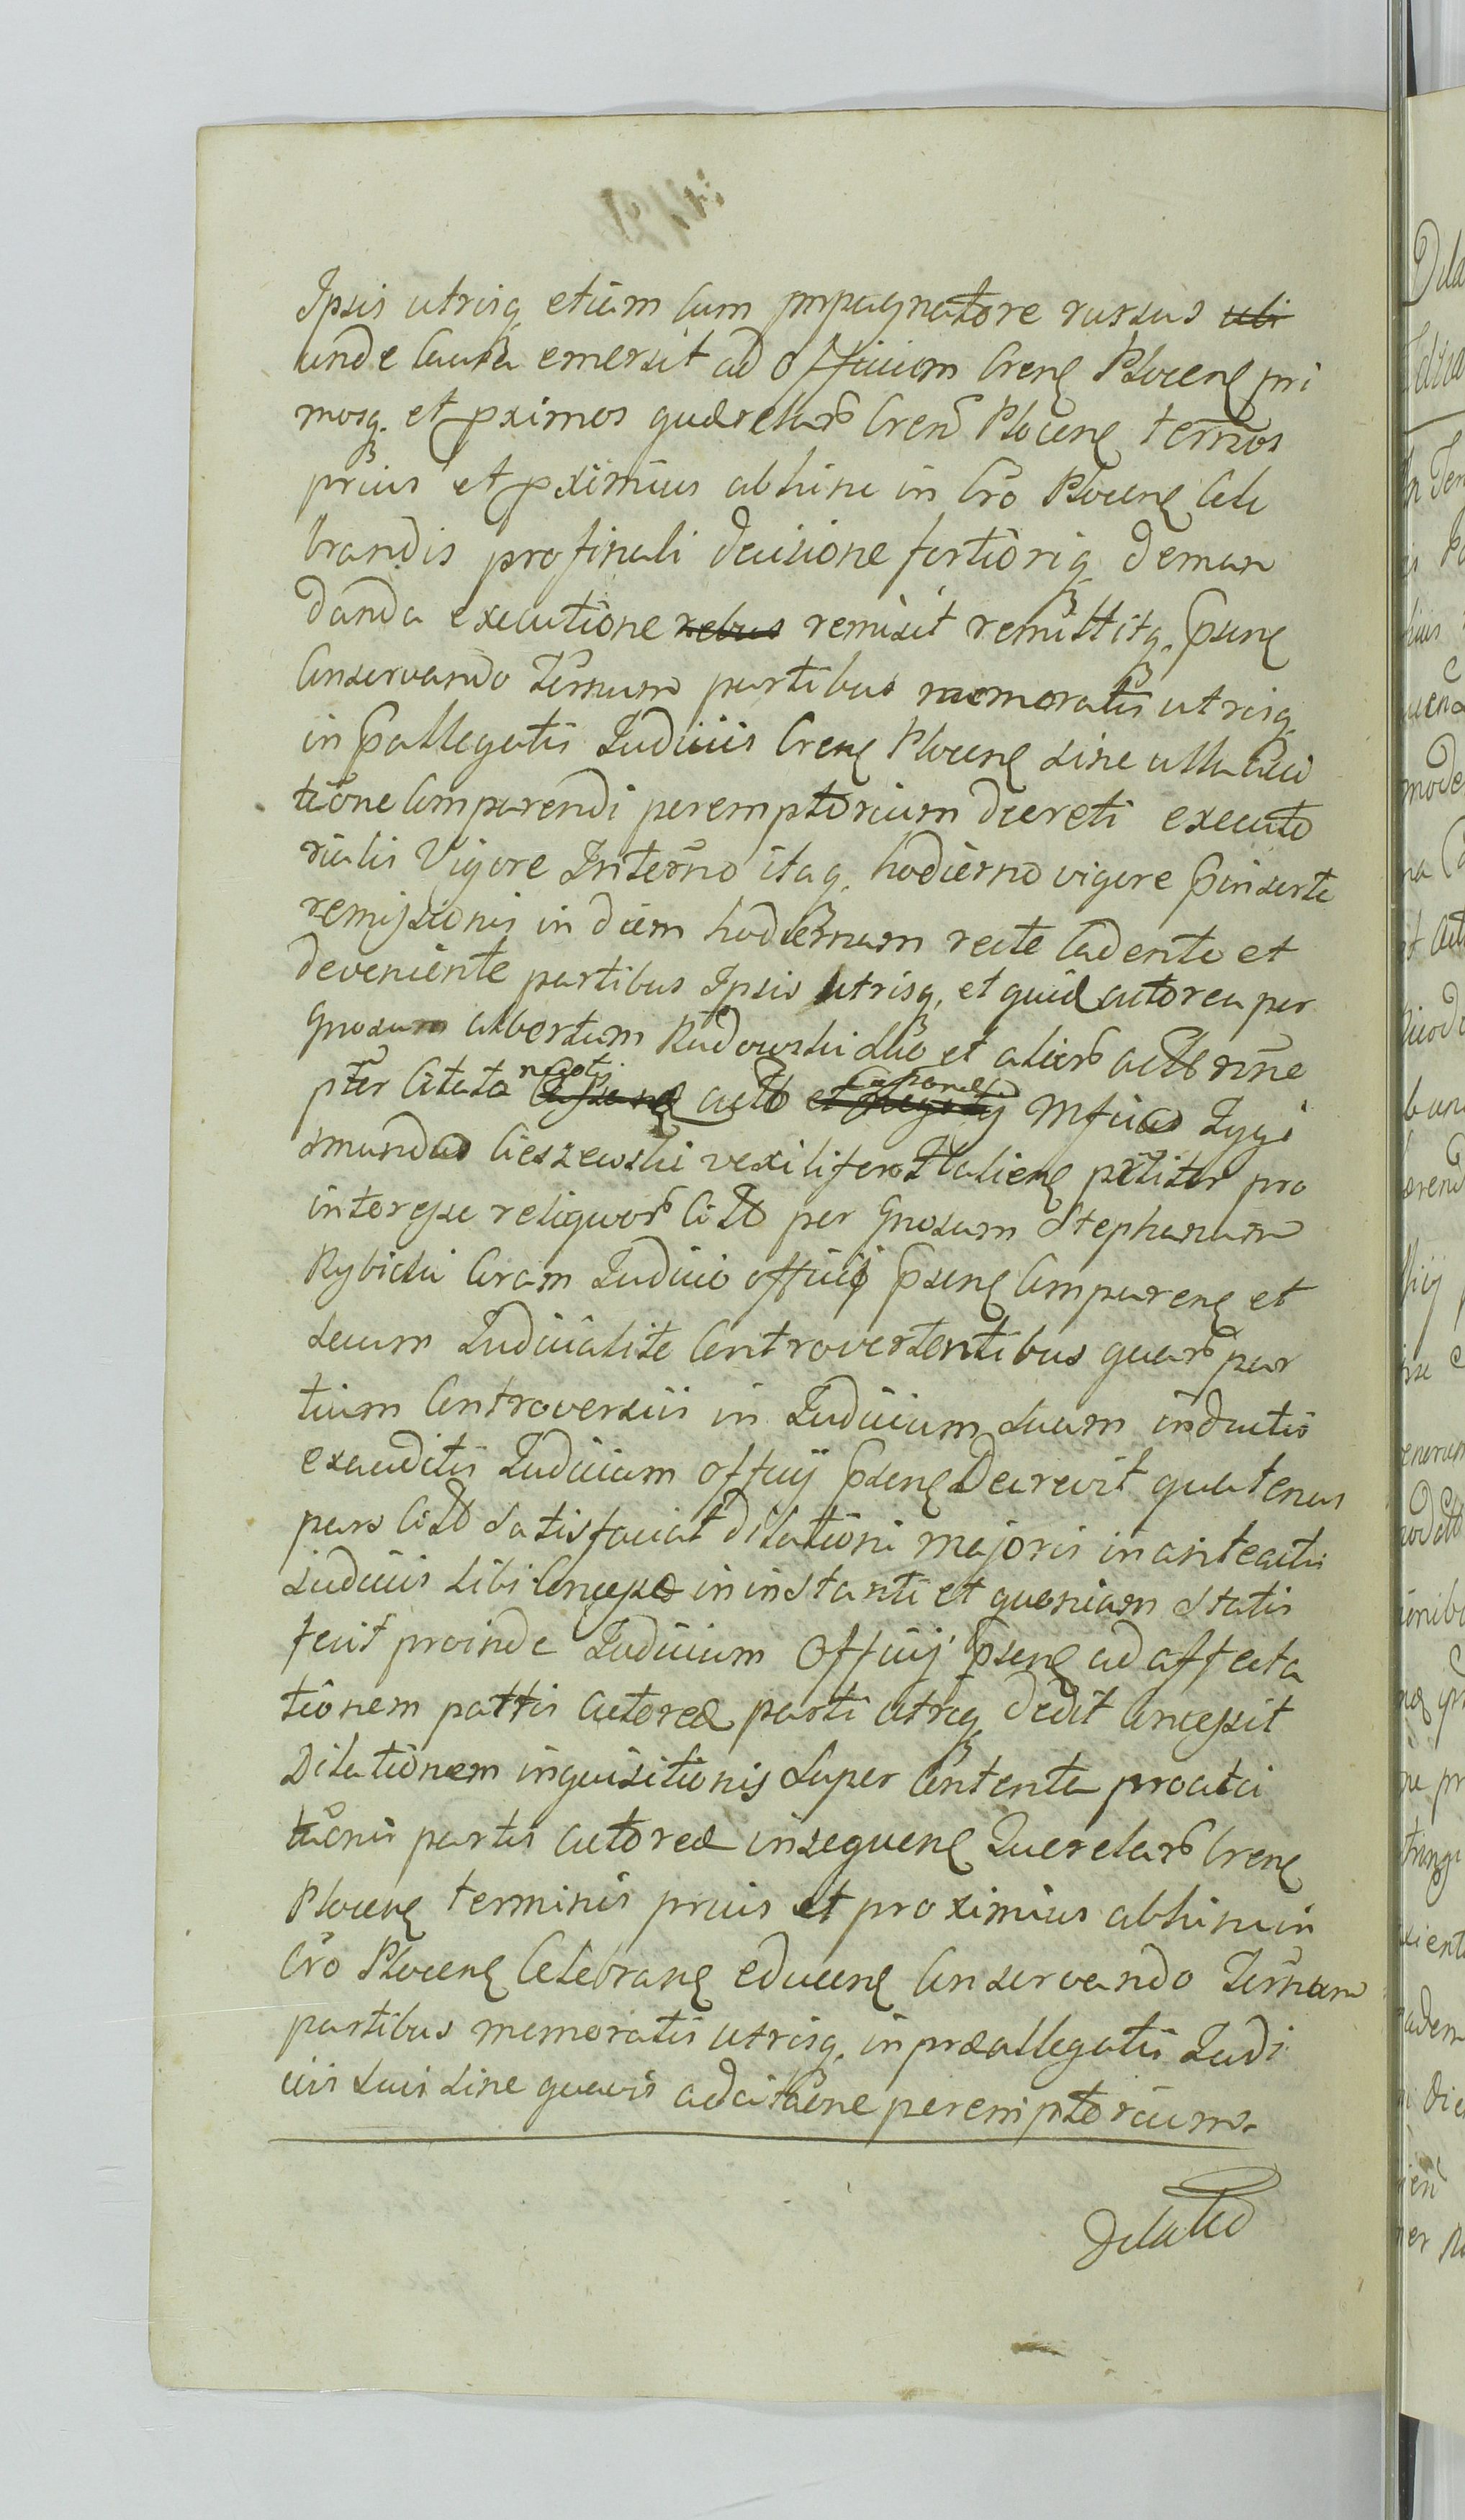 Ipsis utrisq, etiam cum impugnatore rursus ubi
unde causa emersit ad officium Crens Plocens pri
mosq, et pximos quærelarum Cren Plocens termnos
prius et pximius abhinc in Cro Plocens cele
brandis pro finali decisione fortioriq, deman
danda executione rebus remisit remittitq, Psens
conservando Termnum partibus memoratis utrisq,
in Pallegatis Judiciis Crens Plocens sine ulla adci
tatione comparendi peremptorium decreti executo
rialis Vigore In termno itaq, hodierno vigore Pinserta
remissionis in diem hodiernum recte cadente et
deveniente partibus Ipsis utrisq, et quidem actorea per
Gnosum Albertum Rudowski suo et alior actor nne
pter citata negotj actor et Mficus Zygi
smundus Cieszewski vexilifer personaliter pro
interesse reliquor citt per Gnosum Stephanum
Rybicki coram Judicio officij Psens comparens et
secum Judicialite controvertentibus quar par
tium controversiis in Judicium suum inductis
exauditis Judicium officij Psens Decrevit quatenus
pars citt satisfaciat dilationi majoris in anteactis
judiciis sibi concessæ in instanti et quoniam satis
fecit proinde Judicium Officij Psens ad affecta
tionem partis actoreæ parti utriq, dedit concessit
Dilationem inquisitionis super contenta proci
tationis partis actoreæ in sequens Querelar Crens
Plocens terminis prius et proximius abhinc in
Cro Plocens Celebrans educens conservando Termnum
partibus memoratis utrisq, in præallegatis Judi
ciis suis sine quavis adcitatione peremptorium.
Dilatio